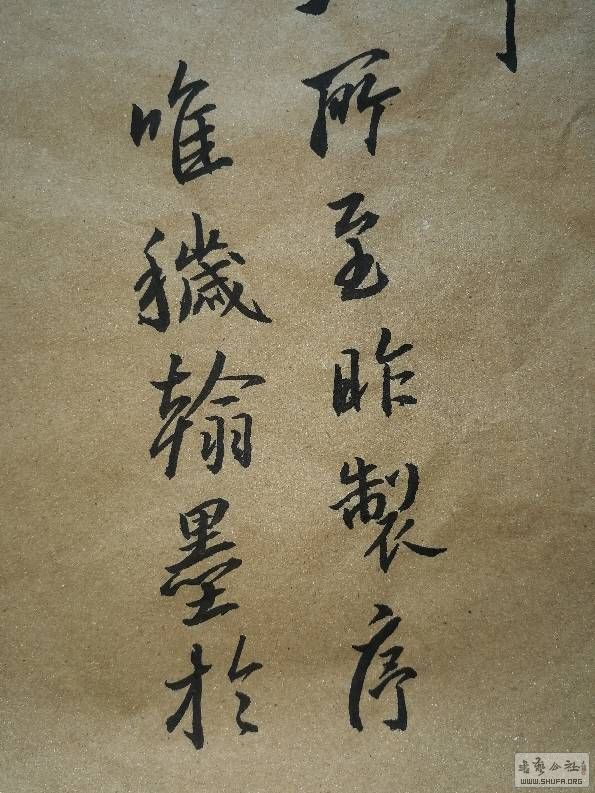 所至昨製序
唯穢翰墨於
書藝公社
WWW.SHUFA.ORG